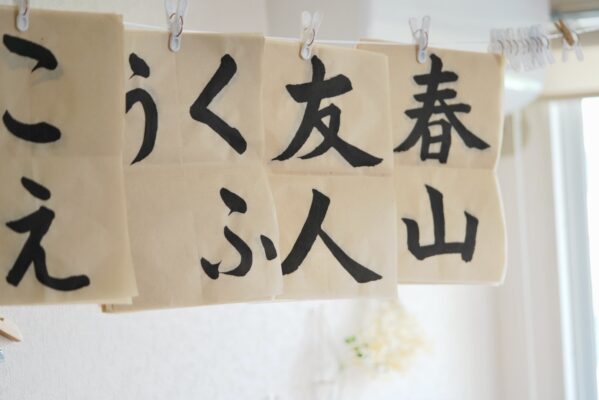 春山
友人
くふ
う
こえ